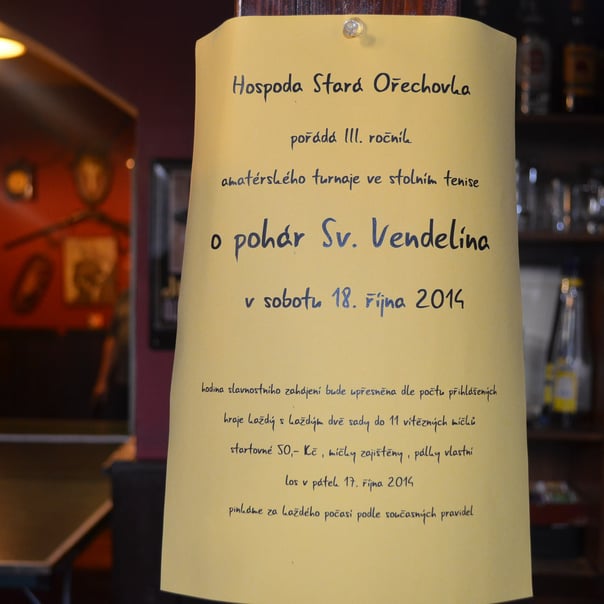 Hospoda Stará Ořechovka
pořádá III. ročník
amatérského turnaje ve stolním tenise
o pohár Sv. Vendelína
v sobotu 18. října 2014
hodina slavnostního zahájení bude upřesněna dle počtu přihlášených
hraje každý s každým dvě sady do 11 vítězných míčků
startovné 50,- Kč , míčky zajištěny , pálky vlastní
los v pátek 17. října 2014
pinkáme za každého počasí podle současných pravidel